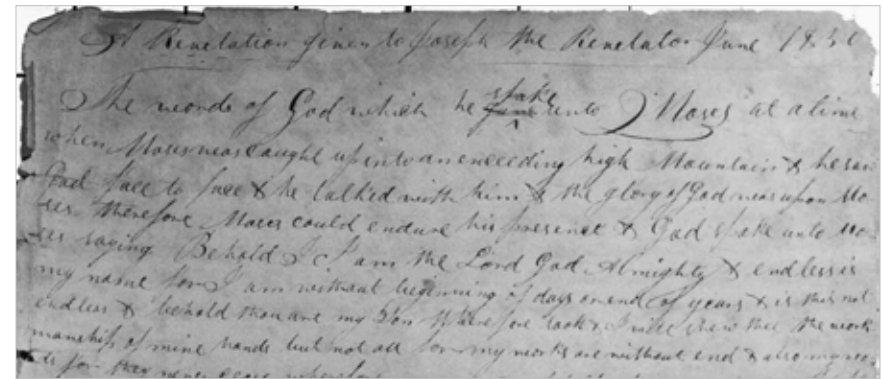 A Revelation given to Joseph the Revelator June 1830
The words of God which he spake unto Moses at a time
when Moses was caught up into an exceeding high Mountain & he saw
God face to face & he talked with him & the glory of God was upon Mo-
ses therefore Moses could endure his presence & God spake unto Mo-
ses saying Behold I I am the Lord God Almighty & endless is
my name for I am without beginning of days or end of years & is this not
endless & behold thou art my Son Wherefore look & I will shew thee the work
manship of mine hands but not all for my works are without end & also my wor-
ds for they never cease wherefore